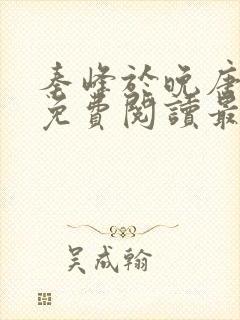 秦峰於晚唐
免費閱讀最
吴成翰